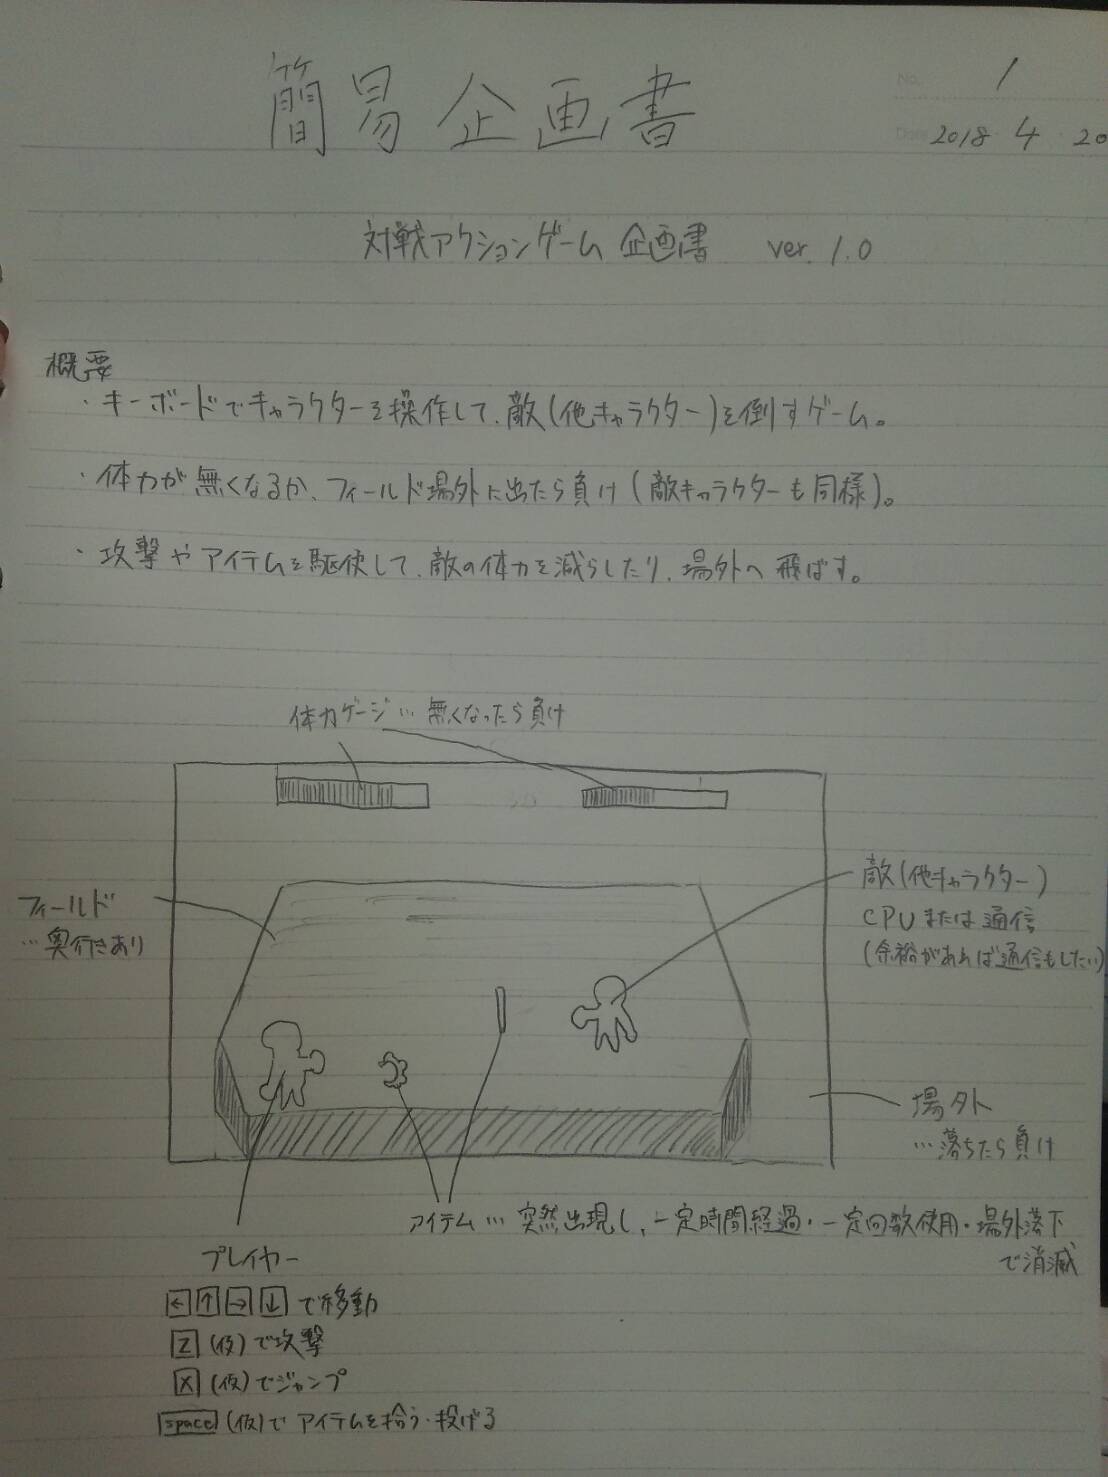 簡易企画書
No. 1
Date 2018 4 20
対戦アクションゲーム 企画書 ver. 1.0
概要
・キーボードでキャラクターを操作して、敵(他キャラクター)を倒すゲーム。
・体力が無くなるか、フィールド場外に出たら負け(敵キャラクターも同様)。
・攻撃やアイテムを駆使して、敵の体力を減らしたり、場外へ飛ばす。
体力ゲージ…無くなったら負け
フィールド
…奥行きあり
敵(他キャラクター)
CPUまたは通信
(余裕があれば通信もしたい)
場外
…落ちたら負け
アイテム…突然出現し、一定時間経過・一定回数使用・場外落下
で消滅
プレイヤー
←↑→↓で移動
Z(仮)で攻撃
X(仮)でジャンプ
space(仮)でアイテムを拾う・投げる